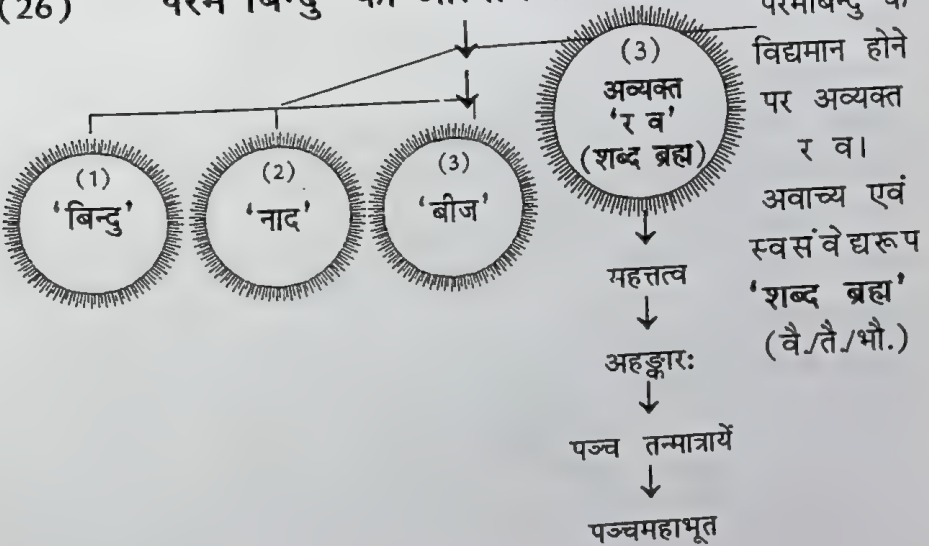 (26) परम बिन्दु का
(1)
'बिन्दु'
(2)
'नाद'
(3)
'बीज'
(3)
अव्यक्त
'र व'
(शब्द ब्रह्म)
महत्तत्व
अहङ्कारः
पञ्च तन्मात्रायें
पञ्चमहाभूत
परमबिन्दु के
विद्यमान होने
पर अव्यक्त
र व।
अवाच्य एवं
स्वसंवेद्यरूप
'शब्द ब्रह्म'
(वै./तै./भौ.)